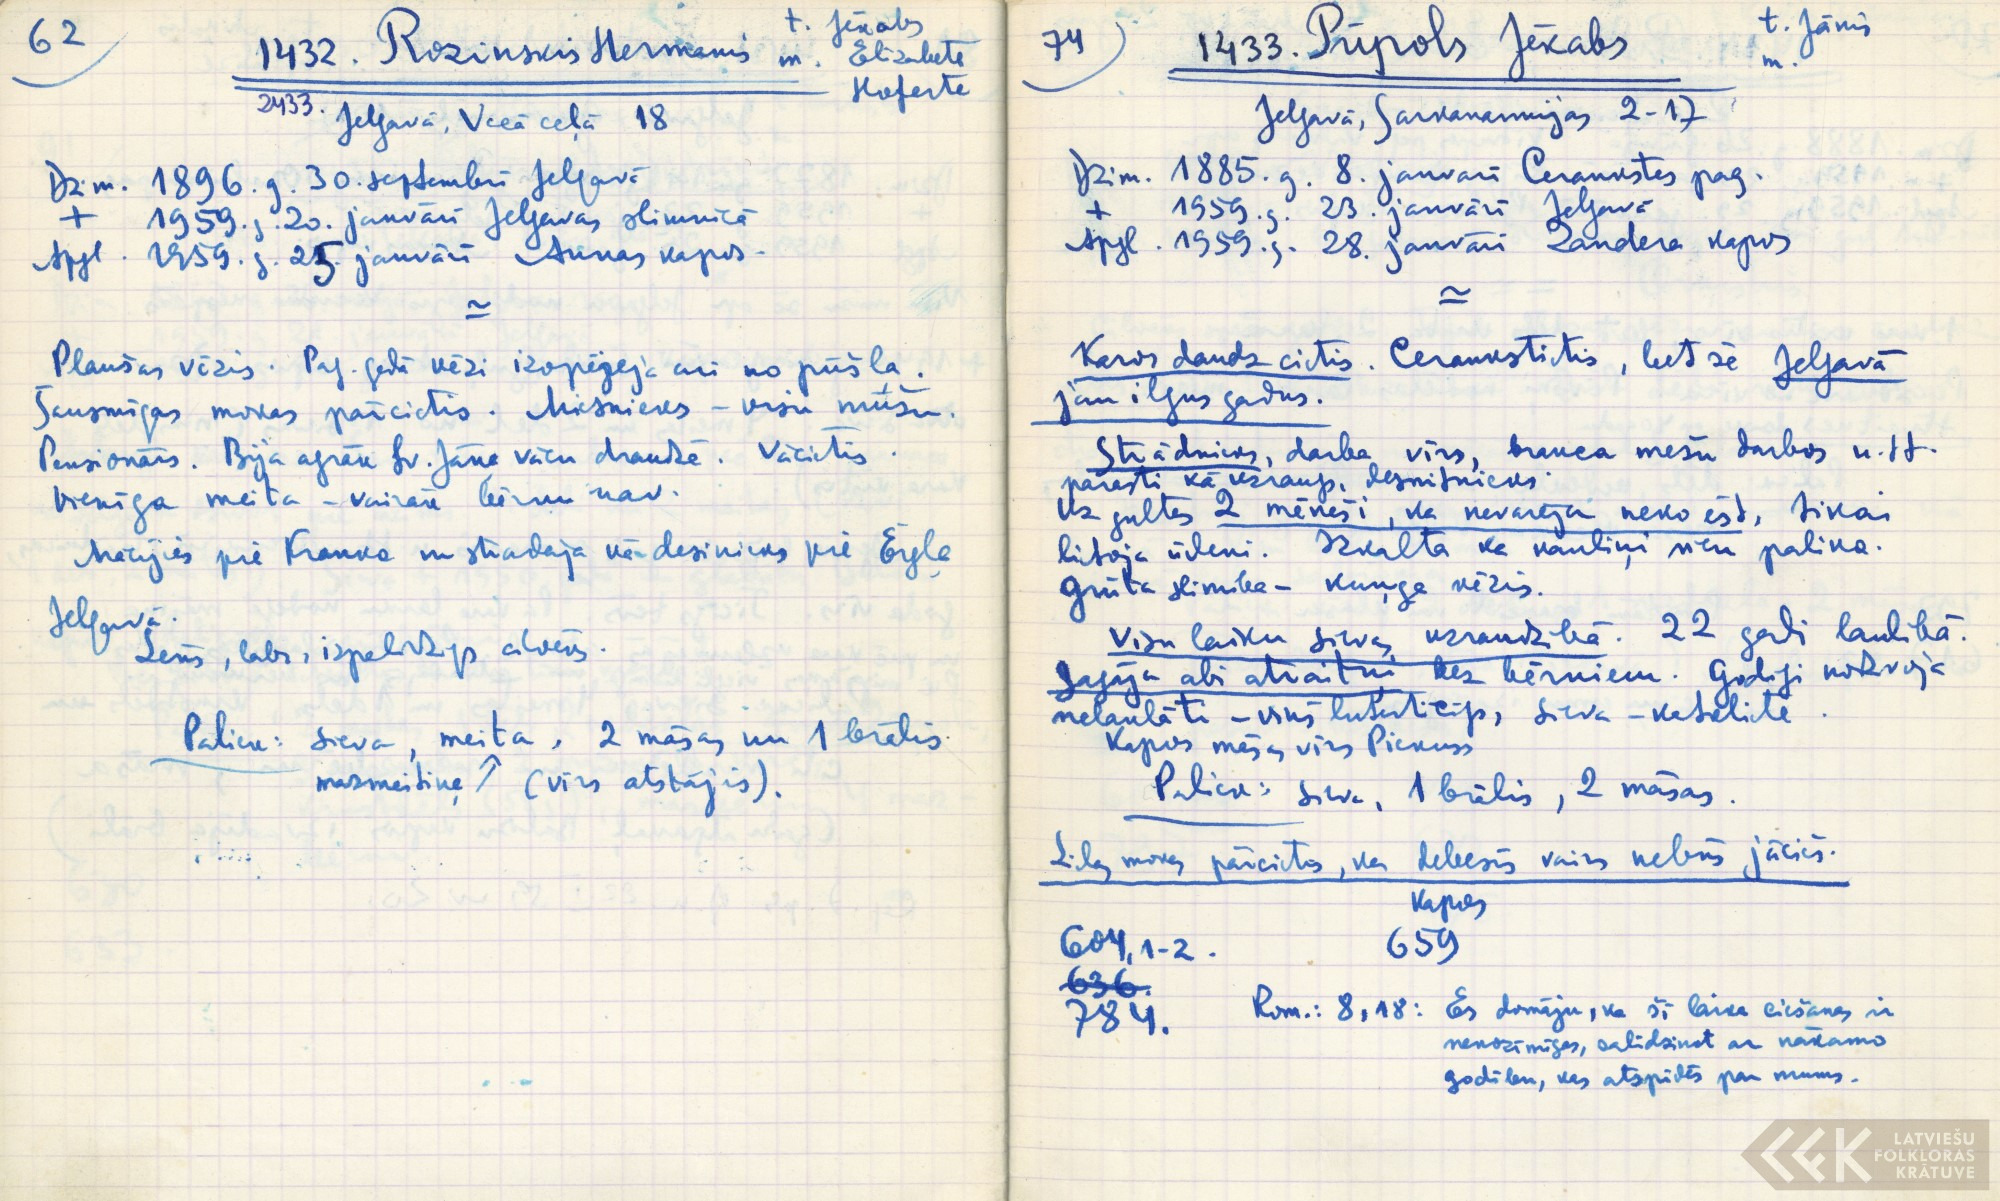 62
1432. Rozinskis Hermanis
t. Jēkabs
m. Elizabete
Hoferte
2433.
Jelgavā, Vecā ceļā 18
Dzim. 1896. g. 30. septembrī Jelgavā
+ 1959. g. 20. janvārī Jelgavas slimnīcā
Apgl. 1959. g. 25. janvārī Annas kapos.
≃
Plaušas vēzis. Pag. gadā vēzi izopēgeja ari no pūšļa.
Šausmīgas mokas pārcietis. Miesnieks – visu mūžu.
Pensionārs. Bija agrāk Sv. Jāņa vācu draudzē. Vācietis.
Vienīga meita – vairāk bērnu nav.
Mācijies pie Kranka un strādāja kā desinieks pie Ērgļa
Jelgavā.
Lēns, labs, izpalīdzīgs cilvēks.
Paliek: sieva, meita, 2 māsas un 1 brālis.
mazmeitiņa ↑ (vīrs atstājis).
74
1433. Pūpols Jēkabs
t. Jānis
m.
Jelgavā, Sarkanarmijas 2-17
Dzim. 1885. g. 8. janvārī Ceraukstes pag.
+ 1959. g. 23. janvārī Jelgavā
Apgl. 1959. g. 28. janvārī Zandera kapos
≃
Karos daudz cietis. Ceraukstietis, bet šē Jelgavā
jau ilgus gadus.
Strādnieks, darba vīrs, brauca mežu darbos u.tt.
parasti kā uzraugs, desmitnieks
Uz gultas 2 mēneši, ka nevarēja neko ēst, tikai
lietoja ūdeni. Izkalta ka kauliņi vien palika.
Grūta slimība – kuņģa vēzis.
Visu laiku sievas uzraudzībā. 22 gadi laulībā.
Sagāja abi atraitņi bez bērniem. Godīgi nodzīvoja
nelaulāti – viņš luterticīgs, sieva – katoliete.
Kapos māsas vīrs Pickuss
Paliek: sieva, 1 brālis, 2 māsas.
Lielas mokas pārcietis, kas debesīs vairs nebūs jācieš.
Kapos
604, 1-2. 659
636.
784.
Rom.: 8, 18: Es domāju, ka šī laika ciešanas ir
nenozīmīgas, salīdzinot ar nākamo
godību, kas atspīdēs par mums.
LATVIEŠU
FOLKLORAS
KRĀTUVE